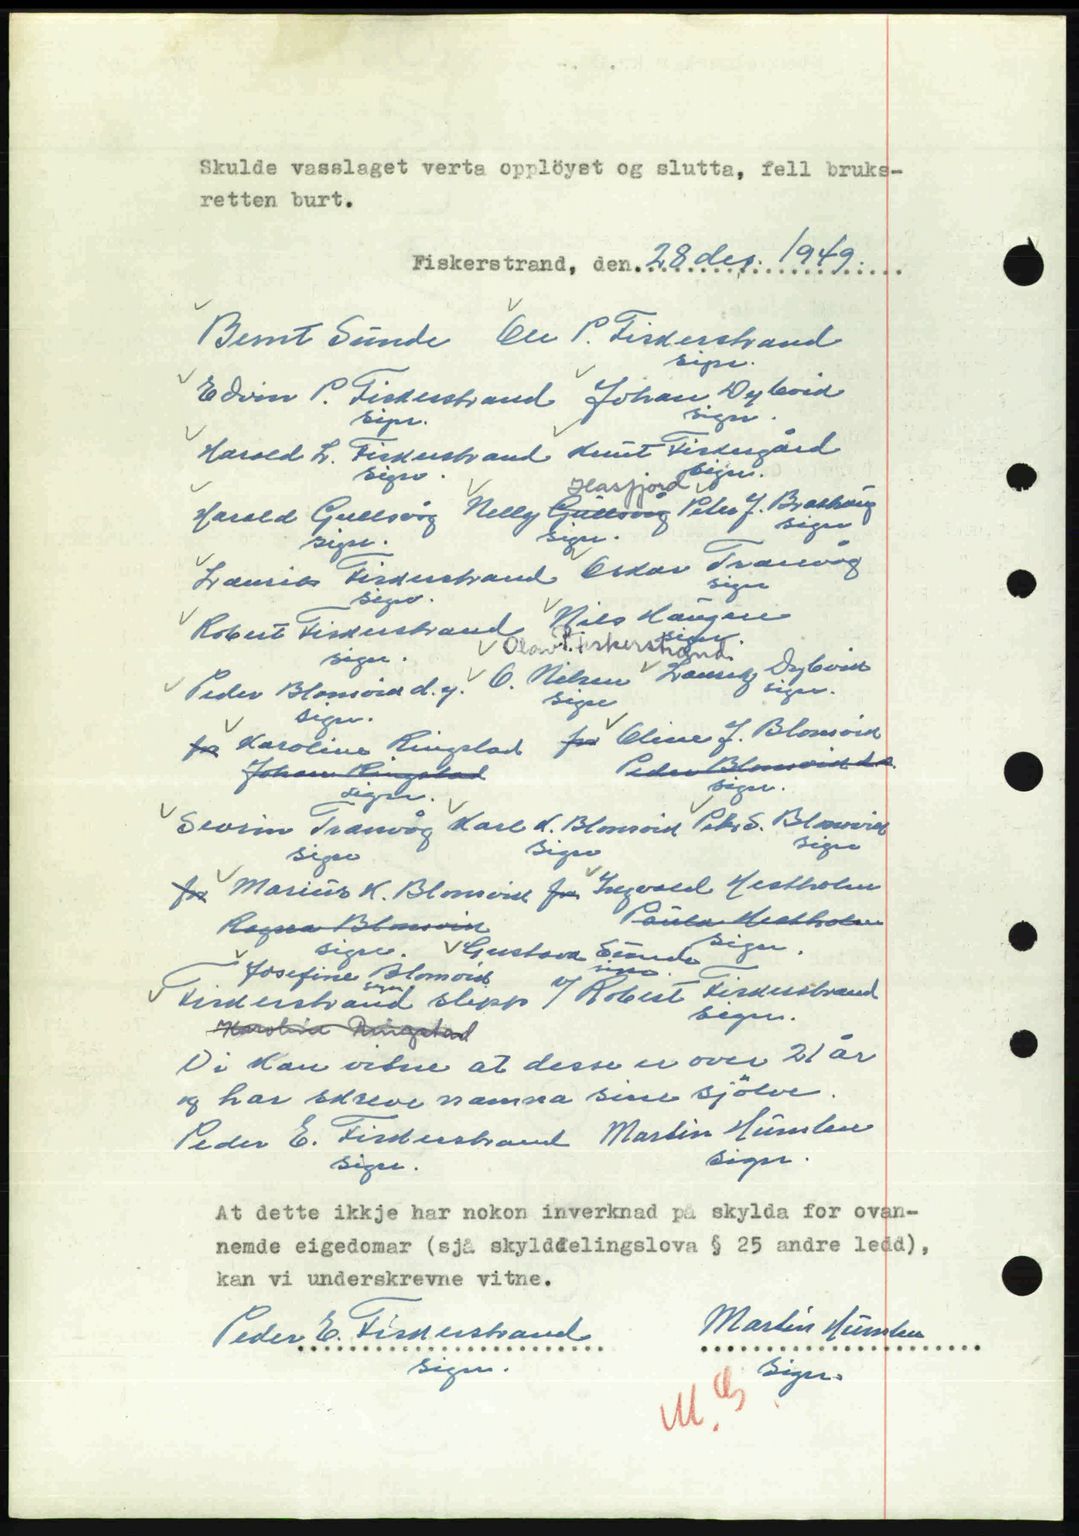 Skulde vasslaget verta opplöyst og slutta, fell bruks-
retten burt.
Fiskerstrand, den. 28 des. 1949.
Bernt Sunde Ole P. Fiskerstrand
sign.
Edvin P. Fiskerstrand Johan Dybvik
sign. sign.
Harald L. Fiskerstrand Knut Fiskergård
sign. sign.
Hasfjord
Harald Gullsvåg Nelly Gullsvåg Peter J.
sign. sign. sign
Laurits Fiskerstrand Oskar Tranvåg
sign. sign
Robert Fiskerstrand Nils Haugen
sign. sign.
Olav P. Fiskerstrand
Peder Blomvik d.y. O. Nilsen Lauritz Dybvik
sign. sign sign.
for Karoline Ringstad for Oline J. Blomvik
Johan Ringstad Peder Blomvik d.e.
sign. sign.
Sevrin Tranvåg Karl K. Blomvik Peter S. Blomvik
sign sign sign
for Marius K. Blomvik for Ingvald Hestholm
Ragna Blomvik Paula Hestholm
sign. Gustava Sunde sign.
sign.
Josefine Blomvik
sign
Fiskerstrand slipp / Robert Fiskerstrand
sign.
Karoline Ringstad
Vi kan vitne at desse er over 21 år
og har skreve namna sine sjölve.
Peder E. Fiskerstrand Martin Humlen
sign. sign.
At dette ikkje har nokon inverknad på skylda for ovan-
nemde eigedomar (sjå skylddelingslova § 25 andre ledd),
kan vi underskrevne vitne.
Peder E. Fiskerstrand Martin Humlen
sign. sign.